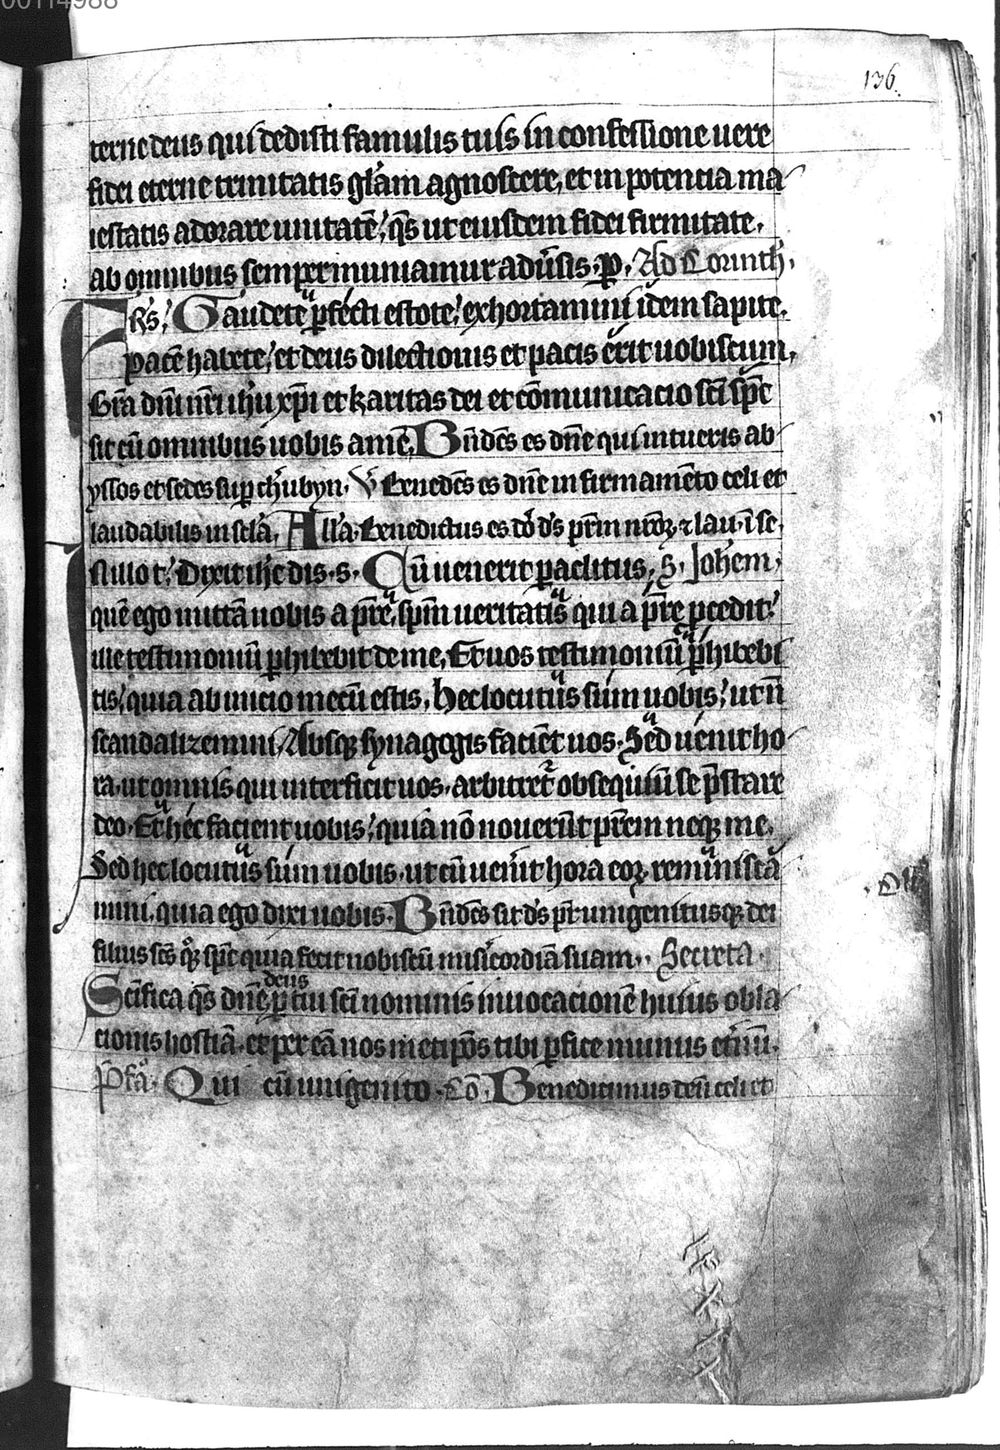 00114988
136.
terne deus qui dedisti famulis tuis in confessione uere
fidei eterne trinitatis gl̄am agnoscere, et in potencia ma
iestatis adorare unitatē, q̄s ut eiusdem fidei firmitate,
ab omnibus semper muniamur adūsis. p. Ad Corinth,
Frs, Gaudete ꝑfecti estote, exhortamini idem sapite,
pacē habete, et deus dilectionis et pacis erit uobiscum,
Gr̄a dn̄i nr̄i ihū xp̄i et karitas dei et cōmunicacio sc̄i sp̄c
sit cū omnibus uobis amē, Bn̄dēs es dn̄e qui intueris ab
yssos et sedes suꝑ chubyn, V Benedēs es dn̄e in firmamēto celi et
laudabilis in scl̄a, All'a. Benedictus es dn̄ d's pr̄m nr̄oꝝ ⁊ lau. ī se
In illo t, Dixit ihc dis. s. Cū uenerit paclitus, S. Johem,
quē ego mittā uobis a pr̄e, sp̄m ueritatis qui a pr̄e pcedit,
ille testimoniū ꝑhibebit de me, Et uos testimoniū ꝑhibebi
tis, quia ab inicio mecū estis, hec locutus sum uobis, ut n̄
scandalizemini, Absqꝫ synagogis faciēt uos, Sed uenit ho
ra, ut omnis qui interficit uos, arbitret obsequiū se p̄stare
deo, Et hec facient uobis, quia nō nouerūt pr̄em neqꝫ me,
Sed hec locutus sum uobis, ut cū uenit hora eoꝝ reminiscā
mini, quia ego dixi uobis. Bn̄dēs sit d's pr̄ unigenitusqꝫ dei
filius scs qꝫ sp̄c quia fecit nobiscū misicordiā suam. Secreta.
Scifica q̄s dn̄e deus ꝑ tui sc̄i nominis inuocacionē huius obla
cionis hostiā, et per eā nos metipōs tibi ꝑfice munus etnū.
Pfa. Qui cū unigenito. Cō. Benedicimus deū celi et